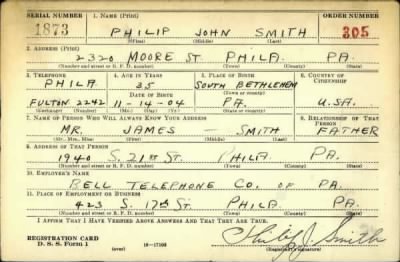 SERIAL NUMBER 1. NAME (Print) ORDER NUMBER
1873 PHILIP JOHN SMITH 305
(First) (Middle) (Last)
2. ADDRESS (Print)
2320 MOORE ST. PHILA. PA.
(Number and street or R. F. D. number) (Town) (County) (State)
3. TELEPHONE 4. AGE IN YEARS 5. PLACE OF BIRTH 6. COUNTRY OF CITIZENSHIP
PHILA 35 SOUTH BETHLEHEM
DATE OF BIRTH (Town or county)
FULTON 2242 11-14-04 PA. U.S.A.
(Exchange) (Number) (Mo.) (Day) (Yr.) (State or country)
7. NAME OF PERSON WHO WILL ALWAYS KNOW YOUR ADDRESS 8. RELATIONSHIP OF THAT PERSON
MR. JAMES — SMITH FATHER
(Mr., Mrs., Miss) (First) (Middle) (Last)
9. ADDRESS OF THAT PERSON
1940 S. 21ST ST. PHILA PA.
(Number and street or R. F. D. number) (Town) (County) (State)
10. EMPLOYER'S NAME
BELL TELEPHONE CO. OF PA.
11. PLACE OF EMPLOYMENT OR BUSINESS
423 S. 17TH ST. PHILA. PA.
(Number and street or R. F. D. number) (Town) (County) (State)
I AFFIRM THAT I HAVE VERIFIED ABOVE ANSWERS AND THAT THEY ARE TRUE.
REGISTRATION CARD
D. S. S. Form 1 (over) 16—17105 Philip J Smith
(Registrant's signature)